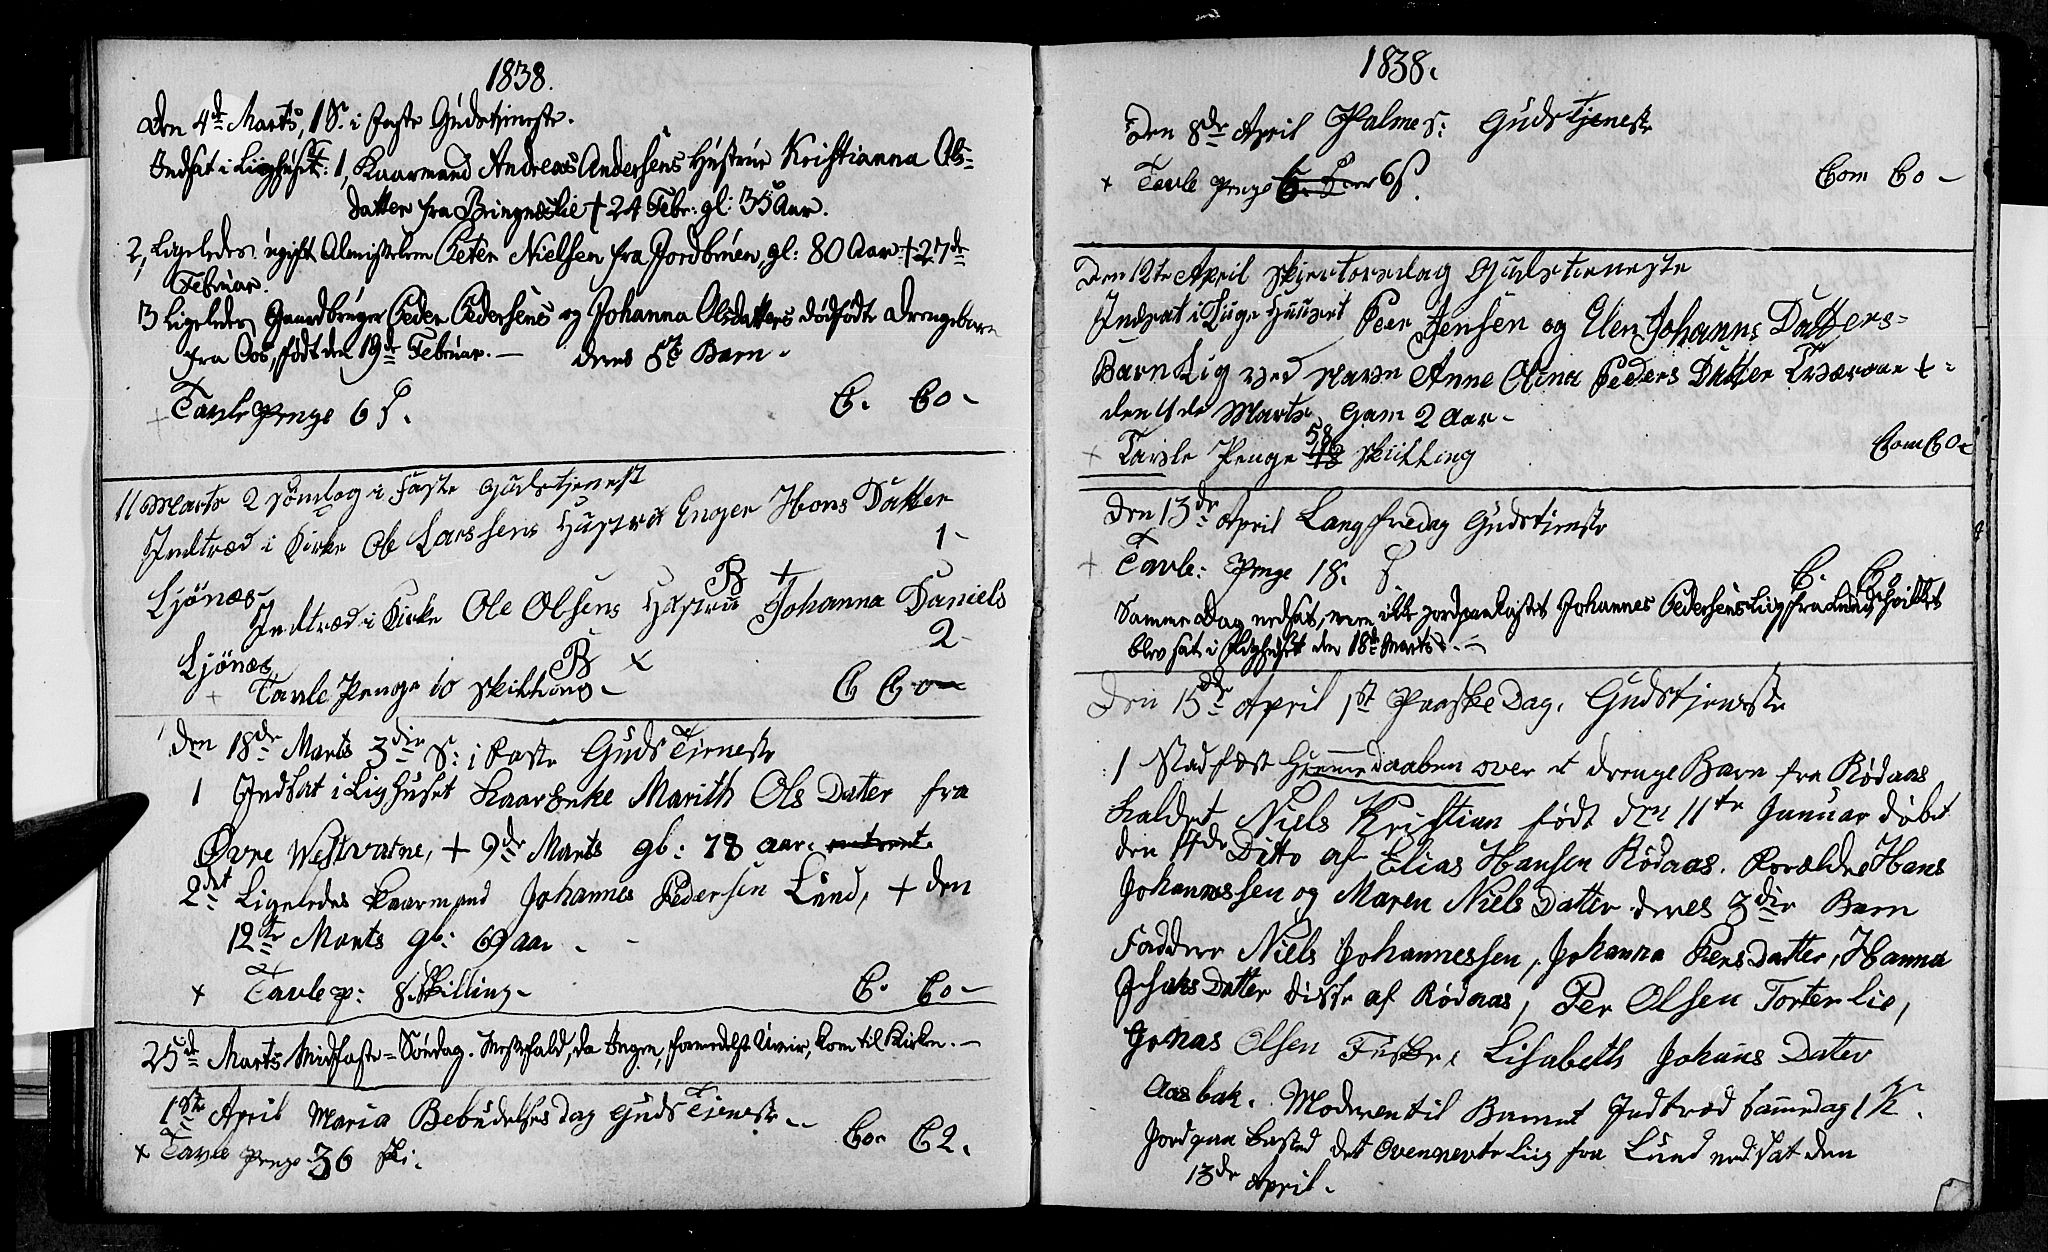 1838.
Den 4de Marts, 1 S. i Faste Gudstjeneste.
Indsat i Liighuset: 1, Kaarmand Andreas Andersens Hustrue Kristianna Ols-
datter fra Bringneslie † 24 Febr: gl: 35 Aar.
2, Ligeledes ugift Almislem Peter Nielsen fra Jordbruen, gl: 80 Aar † 27de
Februar.
3 Ligeledes Gaardbruger Peder Pedersens og Johanna Olsdatters dødfødte Drengebarn
fra Oos, født den 19de Februar. — deres 8de Barn.
Tavlepenge 6 ß. C. C0 -
11 Marts 2 Söndag i Faste Gudstjenest
Indtræd i Kirke Ole Larssens Hustru Enger Hans Datter
Ljönæs B + 1-
Indtræd i Kirke Ole Olsens Hustru Johanna Daniels
Ljönæs B x 2-
+ Tavle Penge 10 skilling - C C0 -
Den 18de Marts 3die S: i Faste Guds Tieneste
1 Indsat i Lighuset Kaar Enke Marith Ols Datter fra
Øvre Westvatne, + 9de Marts gl: 78 aar.
2det Ligeledes Kaarmand Johannes Pedersen Lund, + den
12te Marts gl: 69 aar. -
x Tavle p: 8 Skilling - C. C0 -
25de Marts Midfaste-Söndag. Messefald, da Ingen, formedelst Uveir, kom til Kirken. —
1ste April Maria Bebudelses Dag Guds Tieneste - -
x Tavle Penge 36 ski. C0 C2.
1838.
Den 8de April Palme S: Gudstjeneste
x Tavle Penge 6 ß. Com C0 -
Den 12te April Skiertorsdag Gudstieneste
Indsat i Liige Huuset Peer Jensen og Elen Johanns Datters-
Barn Lig ved Navn Anne Olina Peders Datter Tværaae +-
den 4de Marts Gam 2 Aar -
+ Tavle Penge 58 skilling Com C0 -
Den 13de April Langfredag Gudstieneste
+ Tavle: Penge 18. ß C. C0
Samme Dag nedsat, men ikke jordpaakastet Johannes Pedersens Liig fra Lund, hvilket
blev sat i Liighuset den 18de Marts. —
Den 15de April 1st Paaske Dag. Gudstjeneste
1 Stadfæst Hiemmedaaben over et drenge Barn fra Rödaas
kaldet Niels Kristian født den 11te Januar døbt
den 17de Ditto af Elias Hansen Rödaas. Forældre Hans
Johannessen og Maren Niels Datter deres 3die Barn
Faddere Niels Johannessen, Johanna Peersdatter, Hanna
Isaks Datter disse af Rödaas, Per Olsen Torterlie,
Jonas Olsen Fuske, Lisabeth Johans Datter
Aasbak. Moderen til Barnet Indtræd samedag 1 K.
Jordpaa kasted det ovennevte Liig fra Lund nedsat den
13de April.